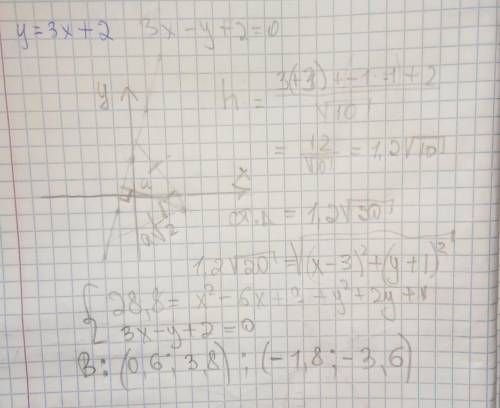 y=3x+2 3x-y+2=0
y
h = (3(+3)+-1·-1+2)/√10
= 12/√10 = 1,2√10
x
a
a√2
= 1,2√20
1,2√20 = √((x-3)²+(y+1)²)
{ 28,8 = x²-6x+9+y²+2y+1
3x-y+2=0
B: (0,6; 3,8); (-1,8; -3,6)